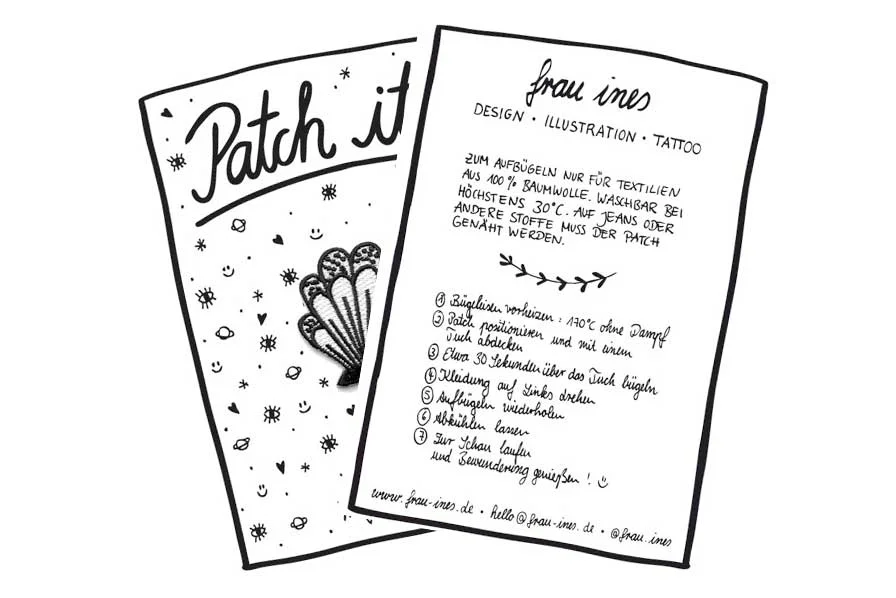 Patch it
frau ines
DESIGN • ILLUSTRATION • TATTOO
ZUM AUFBÜGELN NUR FÜR TEXTILIEN
AUS 100% BAUMWOLLE. WASCHBAR BEI
HÖCHSTENS 30°C. AUF JEANS ODER
ANDERE STOFFE MUSS DER PATCH
GENÄHT WERDEN.
① Bügeleisen vorheizen: 170°C ohne Dampf
② Patch positionieren und mit einem
Tuch abdecken
③ Etwa 30 Sekunden über das Tuch bügeln
④ Kleidung auf Links drehen
⑤ Aufbügeln wiederholen
⑥ Abkühlen lassen
⑦ Zur Schau laufen
und Bewunderung genießen!
www.frau-ines.de • hello@frau-ines.de • @frau.ines